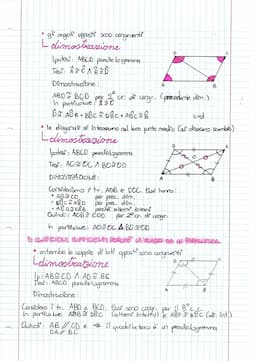 • gli angoli opposti sono congruenti
dimostrazione
Ipotesi: ABCD parallelogramma
Tesi: Â ≅ Ĉ ∧ B̂ ≅ D̂
Dimostrazione:
ABD ≅ BCD per 2° cr. di congr. (precedente dim.)
In particolare Â ≅ Ĉ
cvd
• le diagonali si intersecano nel loro punto medio (si dividono scambi)
dimostrazione
Ipotesi: ABCD parallelogramma
Tesi: AO ≅ OC ∧ BO ≅ DO
DIMOSTRAZIONE:
Consideriamo i tr. AOB e DOC. Essi hanno:
• AB ≅ CD per prec. dim.
per prec. dim.
perché alterni interni
Quindi: AOB ≅ COD per 2° cr. di congr.
In particolare: AO ≅ OC ∧ BO ≅ DO
CONDIZIONI SUFFICIENTI PERCHÉ UN QUADR. SIA UN PARALLELOGR.
• entrambe le coppie di lati opposti sono congruenti
dimostrazione
Ip: AB ≅ CD ∧ AD ≅ BC
Tesi: ABCD parallelogramma
Dimostrazione:
Considero i tr. ABD e BCD. Essi sono congr. per il 3° c.c.
In particolare (alterni interni)
Quindi: AB // CD e ⇒ Il quadrilatero è un parallelogramma
DA // BC